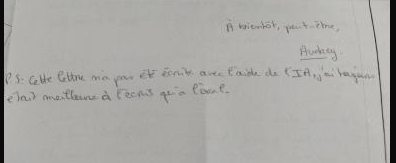 À bientôt, peut-être,
Audrey.
P.S: Cette lettre n'a pas été écrite avec l'aide de l'IA, j'ai toujours
était meilleure à l'écrit qu'à l'oral.